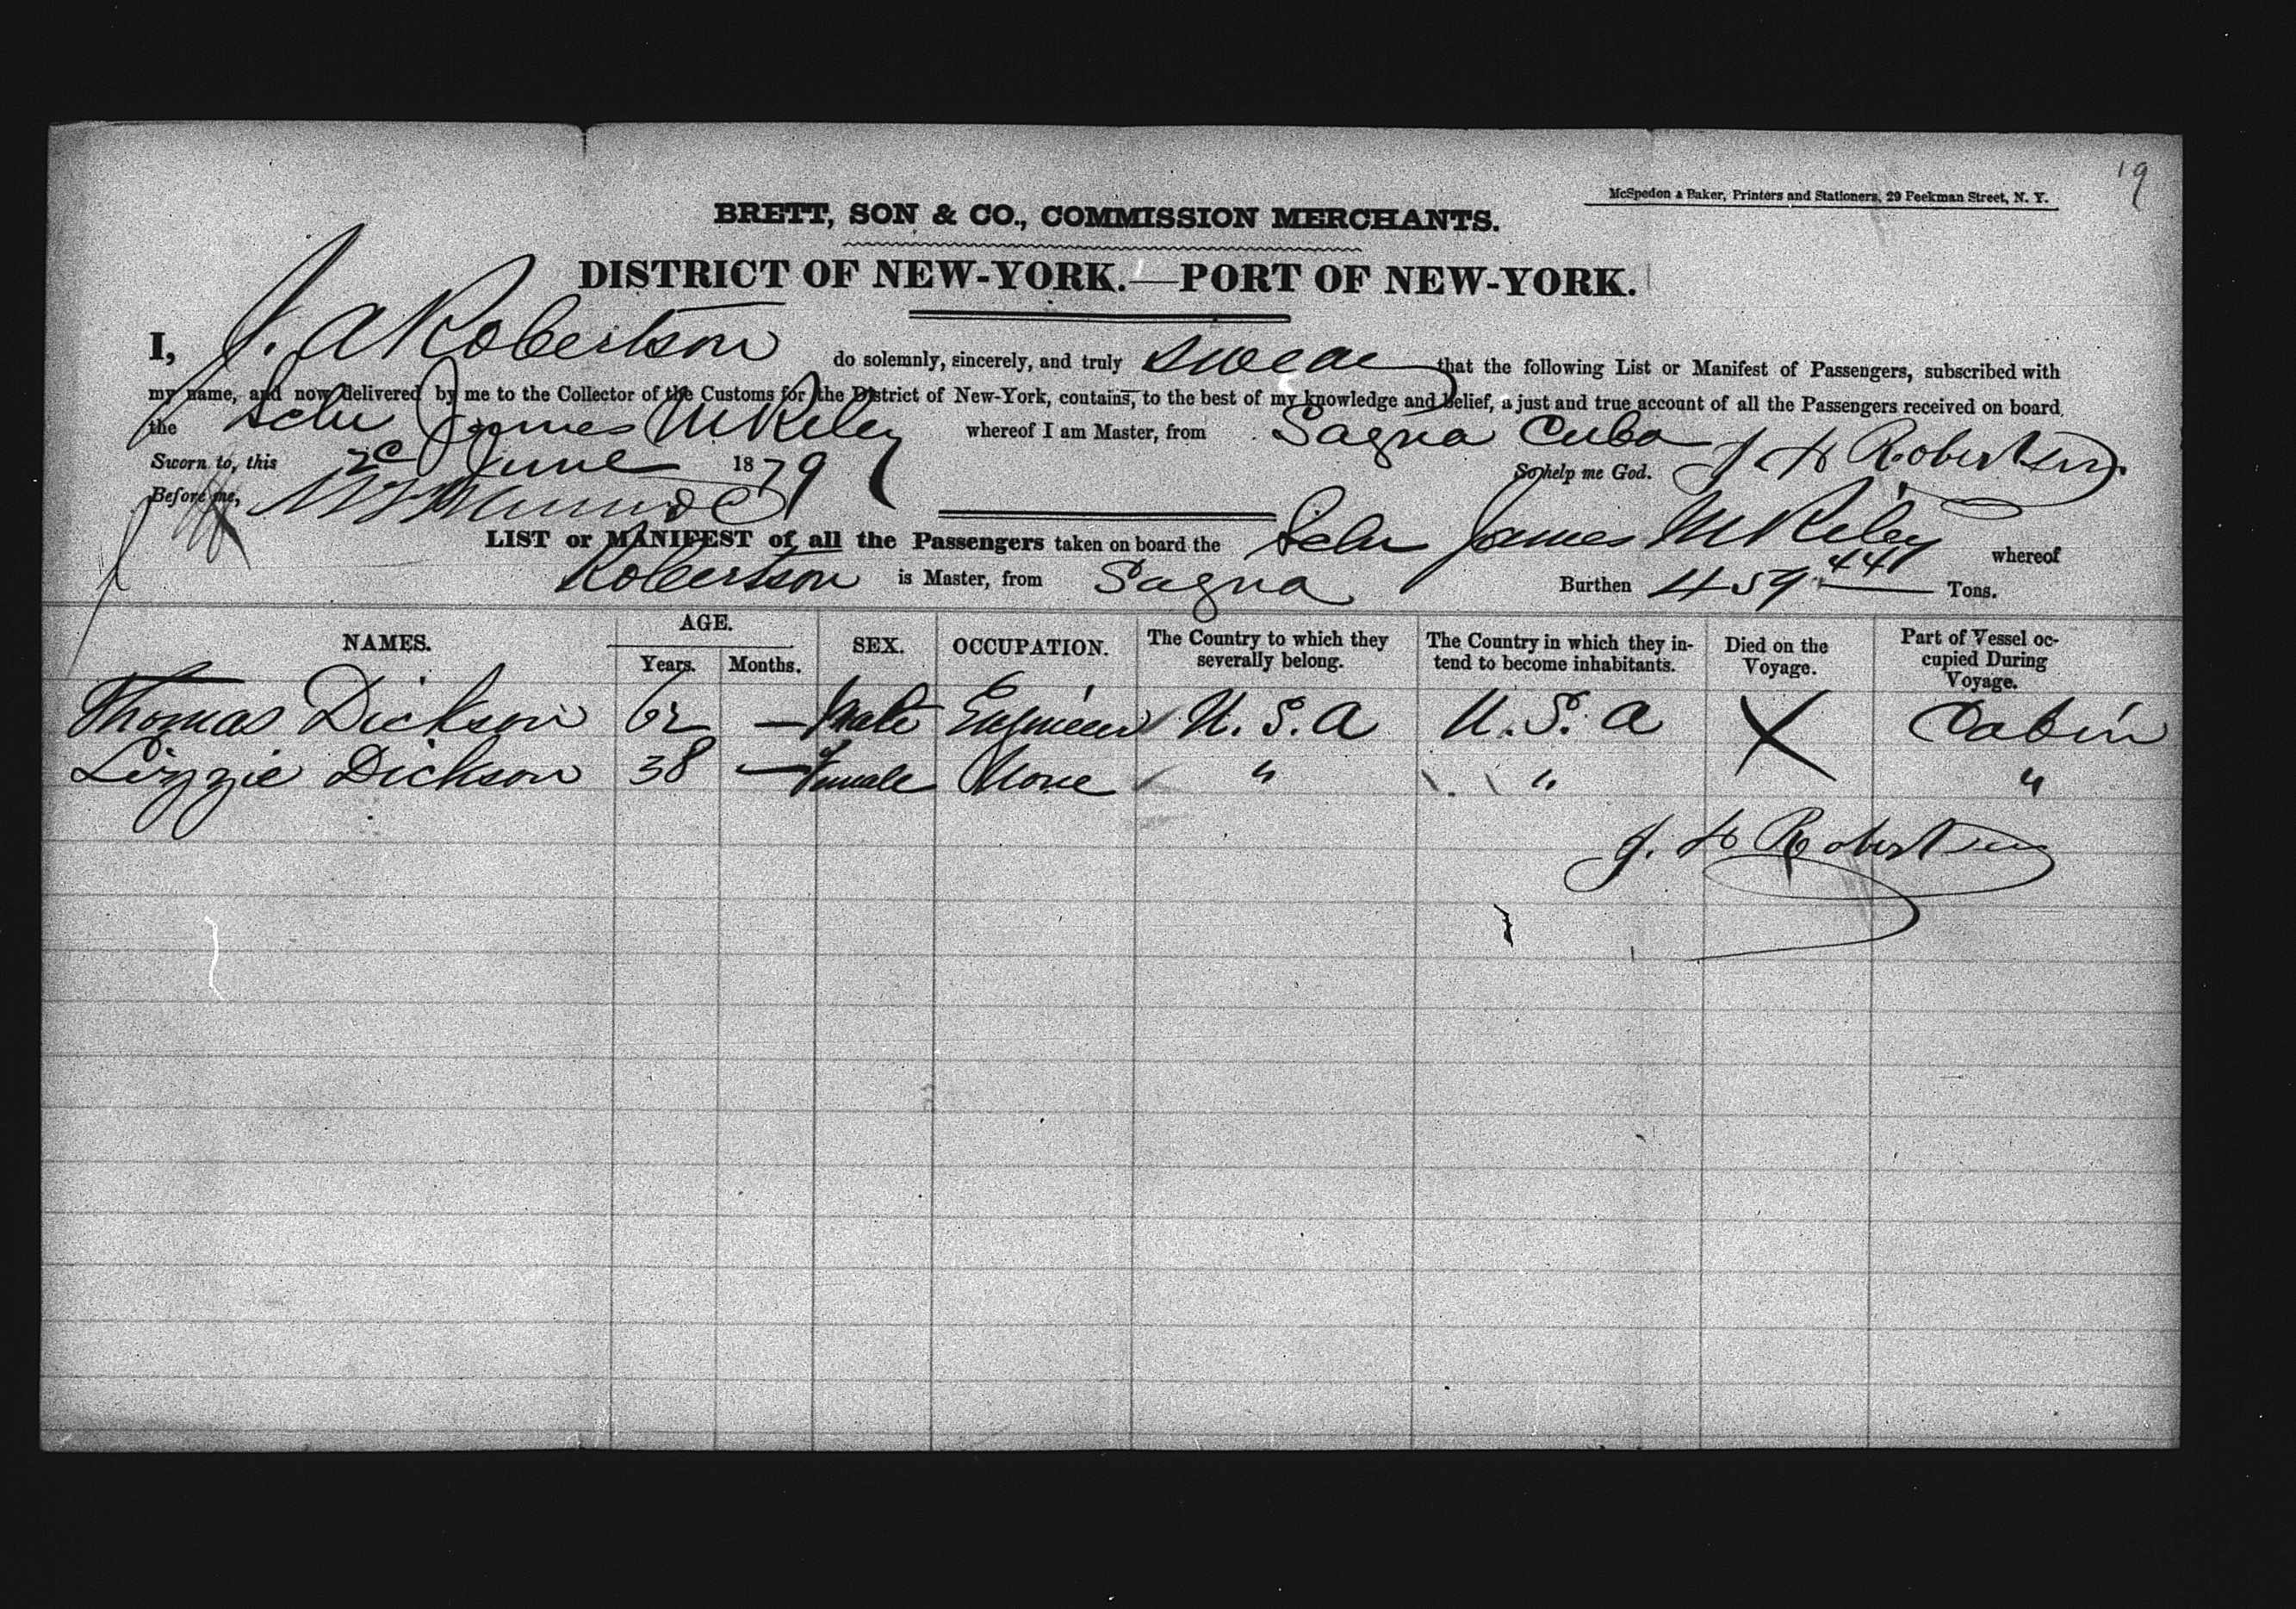 19
McSpedon & Baker, Printers and Stationers, 29 Beekman Street, N. Y.
BRETT, SON & CO., COMMISSION MERCHANTS.
DISTRICT OF NEW-YORK.—PORT OF NEW-YORK.
I, J. A Robertson do solemnly, sincerely, and truly swear that the following List or Manifest of Passengers, subscribed with
my name, and now delivered by me to the Collector of the Customs for the District of New-York, contains, to the best of my knowledge and belief, a just and true account of all the Passengers received on board
the Schr James M Riley whereof I am Master, from Sagua Cuba
Sworn to, this 2d June 1879 So help me God. J A Robertson
Before me,
LIST or MANIFEST of all the Passengers taken on board the Schr James M Riley whereof
Robertson is Master, from Sagua Burthen 459 44/ Tons.
NAMES. AGE. Years. Months. SEX. OCCUPATION. The Country to which they severally belong. The Country in which they intend to become inhabitants. Died on the Voyage. Part of Vessel occupied During Voyage.
Thomas Dickson 62 — Male Engineer U.S.A U.S.A X Cabin
Lizzie Dickson 38 — Female None " " "
J. A Robertson